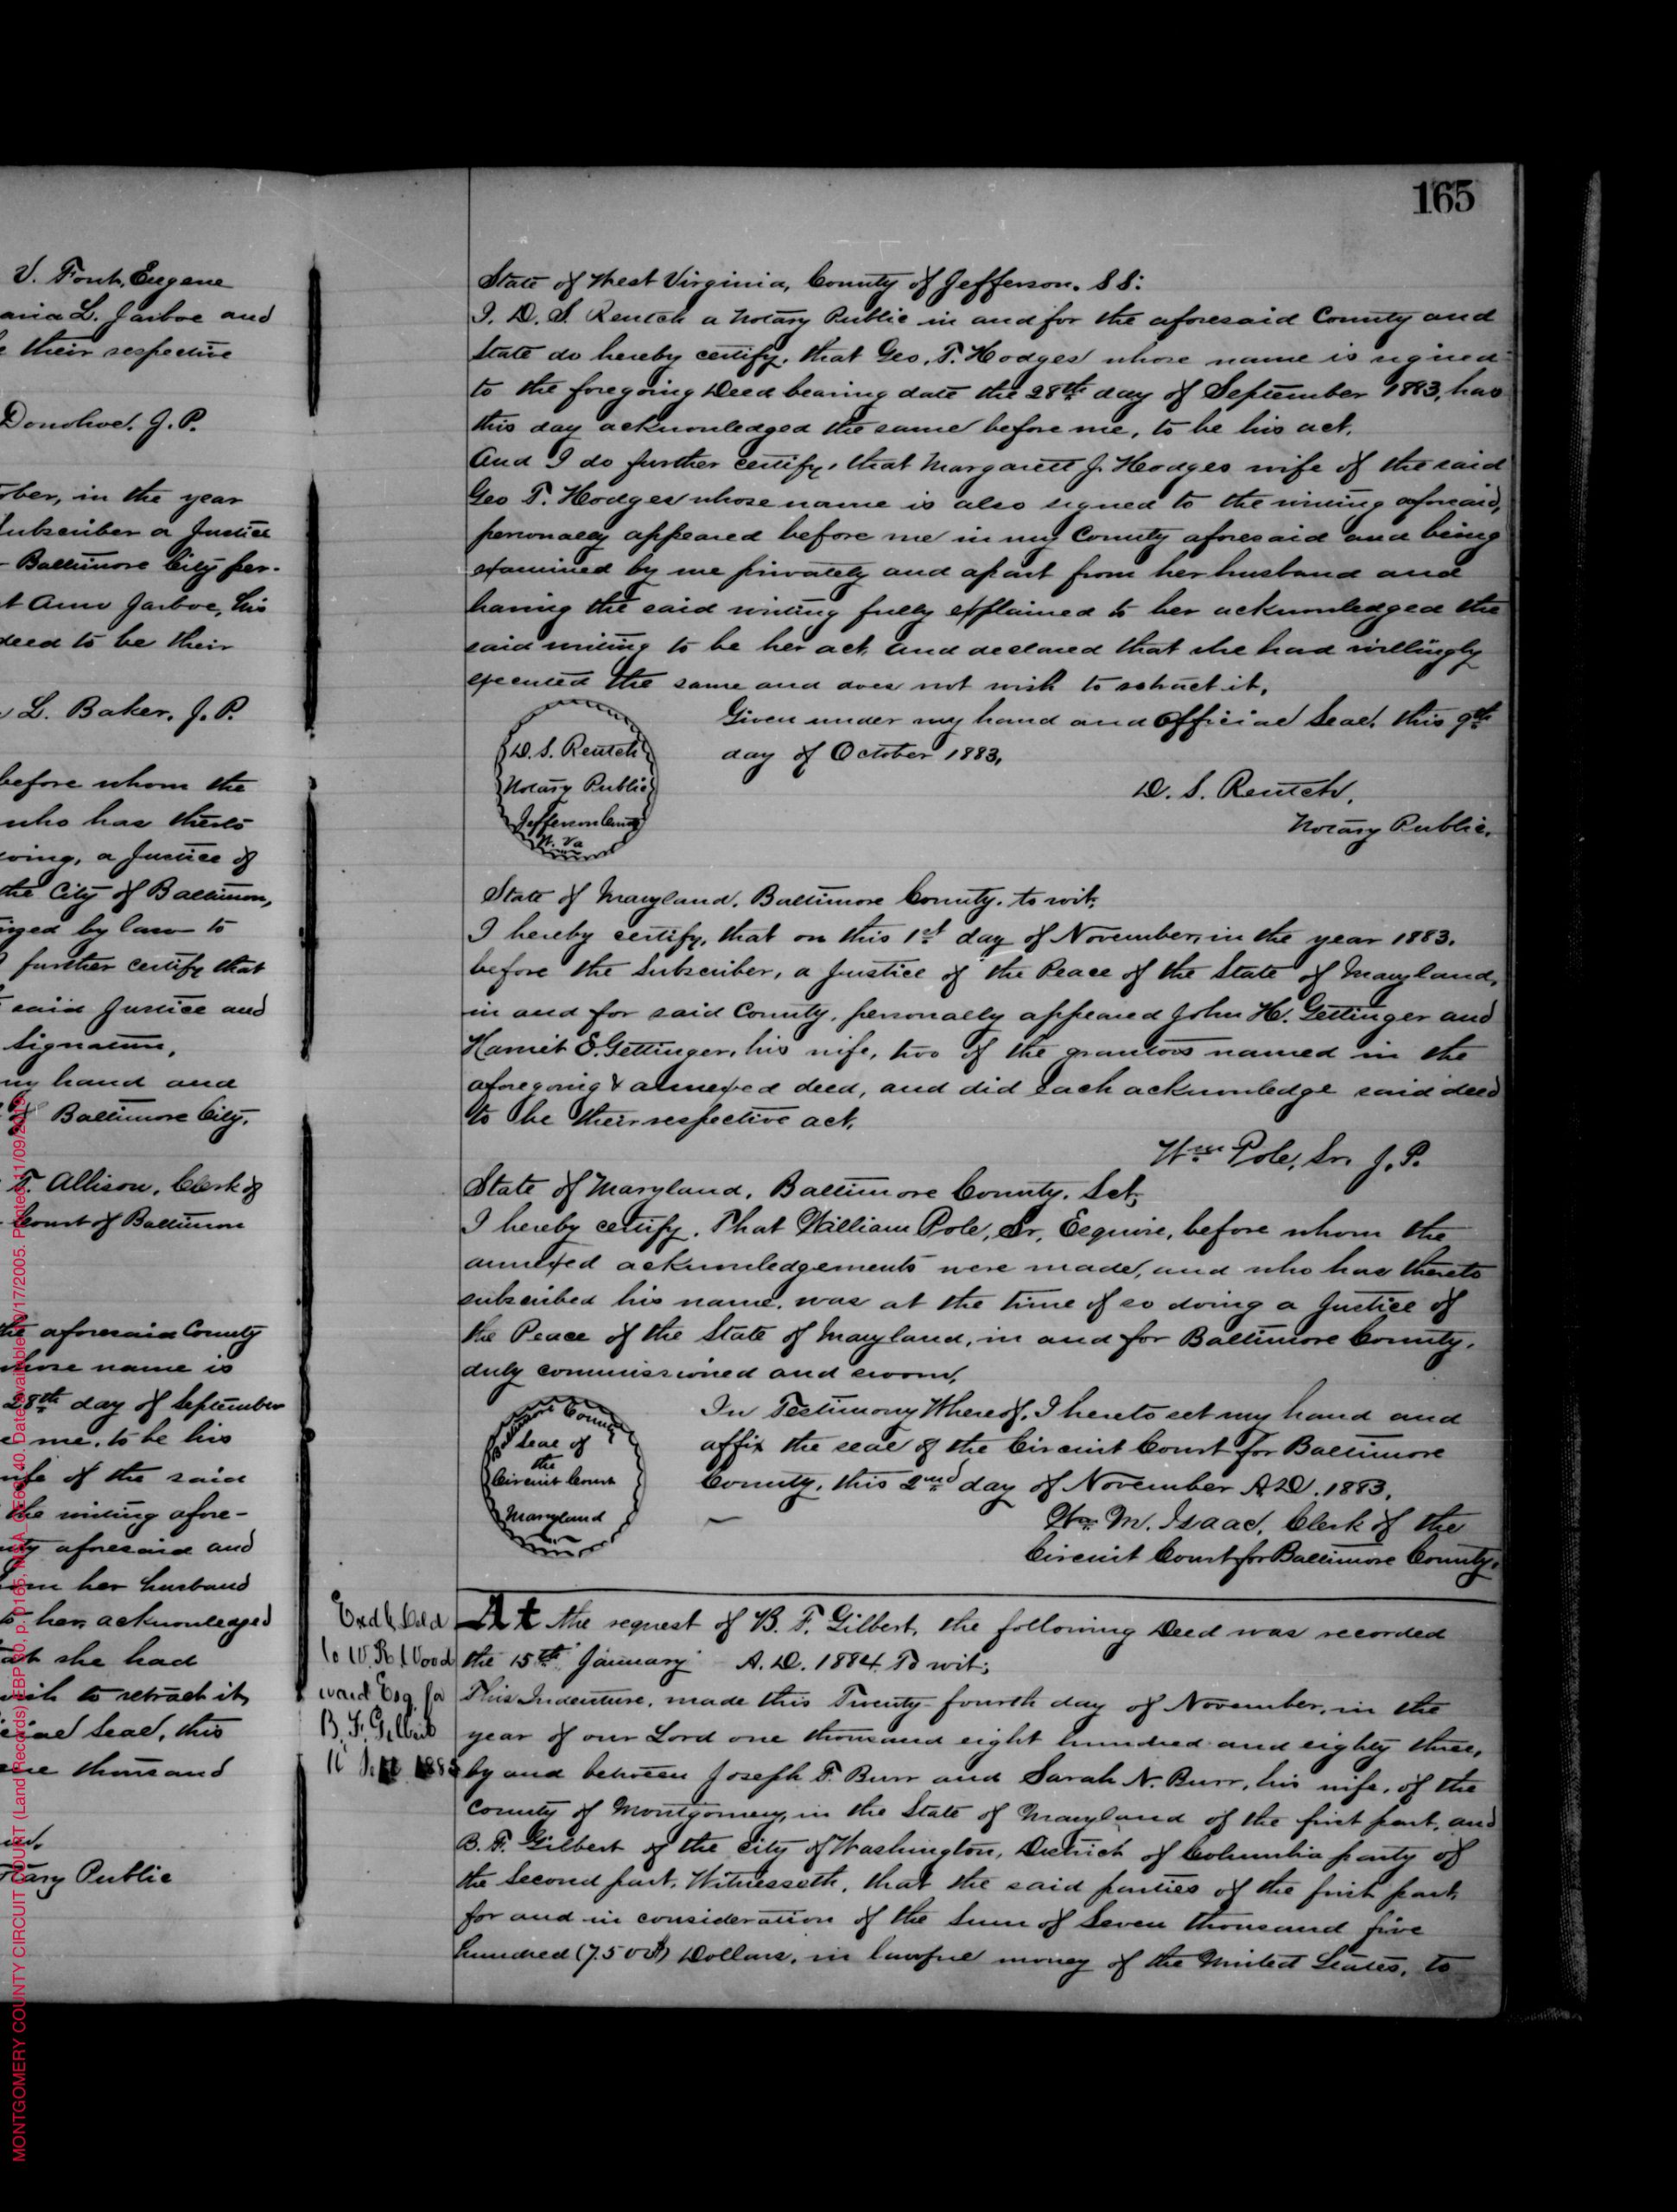 165
V. Fout, Eugene
aria L. Jarboe and
e their respective
Donohoe. J. P.
ober, in the year
Subscriber a Justice
Baltimore City per-
t Ann Jarboe, his
deed to be their
L. Baker, J. P.
before whom the
who has thereto
oing, a Justice of
the City of Baltimore,
ized by law to
I further certify that
said Justice and
signature,
my hand and
of Baltimore City.
T. Allison, Clerk of
Court of Baltimore
the aforesaid County
whose name is
28th day of September
e me, to be his
wife of the said
the writing afore-
nty aforesaid and
from her husband
to her, acknowledged
at she had
wish to retract it,
icial Seal, this
one thousand
Notary Public
State of West Virginia, County of Jefferson. SS:
I. D. S. Rentch a Notary Public in and for the aforesaid County and
State do hereby certify, that Geo. T. Hodges whose name is signed
to the foregoing Deed bearing date the 28th day of September 1883, has
this day acknowledged the same before me, to be his act.
And I do further certify, that Margarett J. Hodges wife of the said
Geo T. Hodges whose name is also signed to the writing aforesaid,
personally appeared before me in my County aforesaid and being
examined by me privately and apart from her husband and
having the said writing fully explained to her acknowledged the
said writing to be her act, and declared that she had willingly
executed the same and does not wish to retract it.
Given under my hand and Official Seal, this 9th
day of October 1883.
D. S. Rentch
Notary Public
Jefferson County
W. Va
D. S. Rentch,
Notary Public.
State of Maryland, Baltimore County. to wit;
I hereby certify, that on this 1st day of November, in the year 1883.
before the Subscriber, a Justice of the Peace of the State of Maryland,
in and for said County, personally appeared John H. Gettinger and
Harriet E. Gettinger, his wife, two of the grantors named in the
aforegoing & annexed deed, and did each acknowledge said deed
to be their respective act.
Wm Pole, Sr. J. P.
State of Maryland, Baltimore County. Sct;
I hereby certify. That William Pole, Sr, Esquire, before whom the
annexed acknowledgements were made, and who has thereto
subscribed his name, was at the time of so doing a Justice of
the Peace of the State of Maryland, in and for Baltimore County,
duly commissioned and sworn.
In Testimony Whereof, I hereto set my hand and
affix the seal of the Circuit Court for Baltimore
County, this 2nd day of November A.D. 1883.
Baltimore County
Seal of
the
Circuit Court
Maryland
Wm M. Isaac, Clerk of the
Circuit Court for Baltimore County.
At the request of B. F. Gilbert, the following Deed was recorded
the 15th January A. D. 1884 To wit;
This Indenture, made this Twenty fourth day of November, in the
year of our Lord one thousand eight hundred and eighty three,
by and between Joseph T. Burr and Sarah N. Burr, his wife, of the
County of Montgomery, in the State of Maryland of the first part, and
B. F. Gilbert of the City of Washington, District of Columbia party of
the Second part. Witnesseth, that the said parties of the first part,
for and in consideration of the Sum of Seven thousand five
hundred (7.500$) Dollars, in lawful money of the United States, to
Exd & Deld
to W. R. Wood
ward Esq for
B. F. Gilbert
MONTGOMERY COUNTY CIRCUIT COURT (Land Records) EBP 30, p. 0165, MSA_CE63_40. Date available 10/17/2005. Printed 11/09/